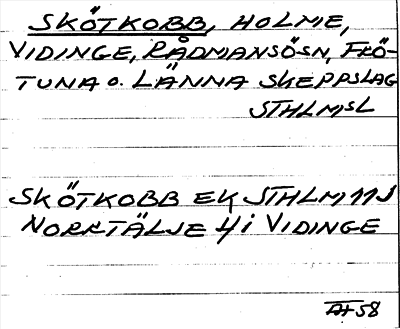 SKÖTKOBB, HOLME,
VIDINGE, RÅDMANSÖSN, FRÖ-
TUNA O. LÄNNA SKEPPSLAG
STHLMSL
SKÖTKOBB EK STHLM 11J
NORRTÄLJE 4i VIDINGE
AH58